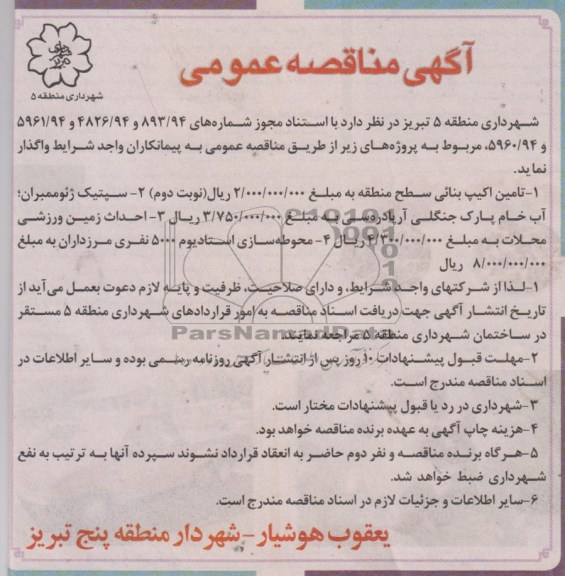 آگهی مناقصه عمومی
شهرداری منطقه ۵
شهرداری منطقه ۵ تبریز در نظر دارد با استناد مجوز شماره‌های ۸۹۳/۹۴ و ۴۸۲۶/۹۴ و ۵۹۶۱/۹۴
و ۵۹۶۰/۹۴، مربوط به پروژه‌های زیر از طریق مناقصه عمومی به پیمانکاران واجد شرایط واگذار
نماید.
۱-تامین اکیپ بنائی سطح منطقه به مبلغ ۲/۰۰۰/۰۰۰/۰۰۰ ریال(نوبت دوم) ۲- سپتیک ژئوممبران؛
آب خام پارک جنگلی آرپادره‌سی به مبلغ ۳/۷۵۰/۰۰۰/۰۰۰ ریال ۳- احداث زمین ورزشی
محلات به مبلغ ۴/۳۰۰/۰۰۰/۰۰۰ ریال ۴- محوطه‌سازی استادیوم ۵۰۰۰ نفری مرزداران به مبلغ
۸/۰۰۰/۰۰۰/۰۰۰ ریال
۱-لذا از شرکتهای واجد شرایط، و دارای صلاحیت، ظرفیت و پایه لازم دعوت بعمل می‌آید از
تاریخ انتشار آگهی جهت دریافت اسناد مناقصه به امور قراردادهای شهرداری منطقه ۵ مستقر
در ساختمان شهرداری منطقه ۵ مراجعه نمایند.
۲-مهلت قبول پیشنهادات ۱۰ روز پس از انتشار آگهی روزنامه رسمی بوده و سایر اطلاعات در
اسناد مناقصه مندرج است.
۳-شهرداری در رد یا قبول پیشنهادات مختار است.
۴-هزینه چاپ آگهی به عهده برنده مناقصه خواهد بود.
۵-هرگاه برنده مناقصه و نفر دوم حاضر به انعقاد قرارداد نشوند سپرده آنها به ترتیب به نفع
شهرداری ضبط خواهد شد.
۶-سایر اطلاعات و جزئیات لازم در اسناد مناقصه مندرج است.
یعقوب هوشیار-شهردار منطقه پنج تبریز
ParsNamadData